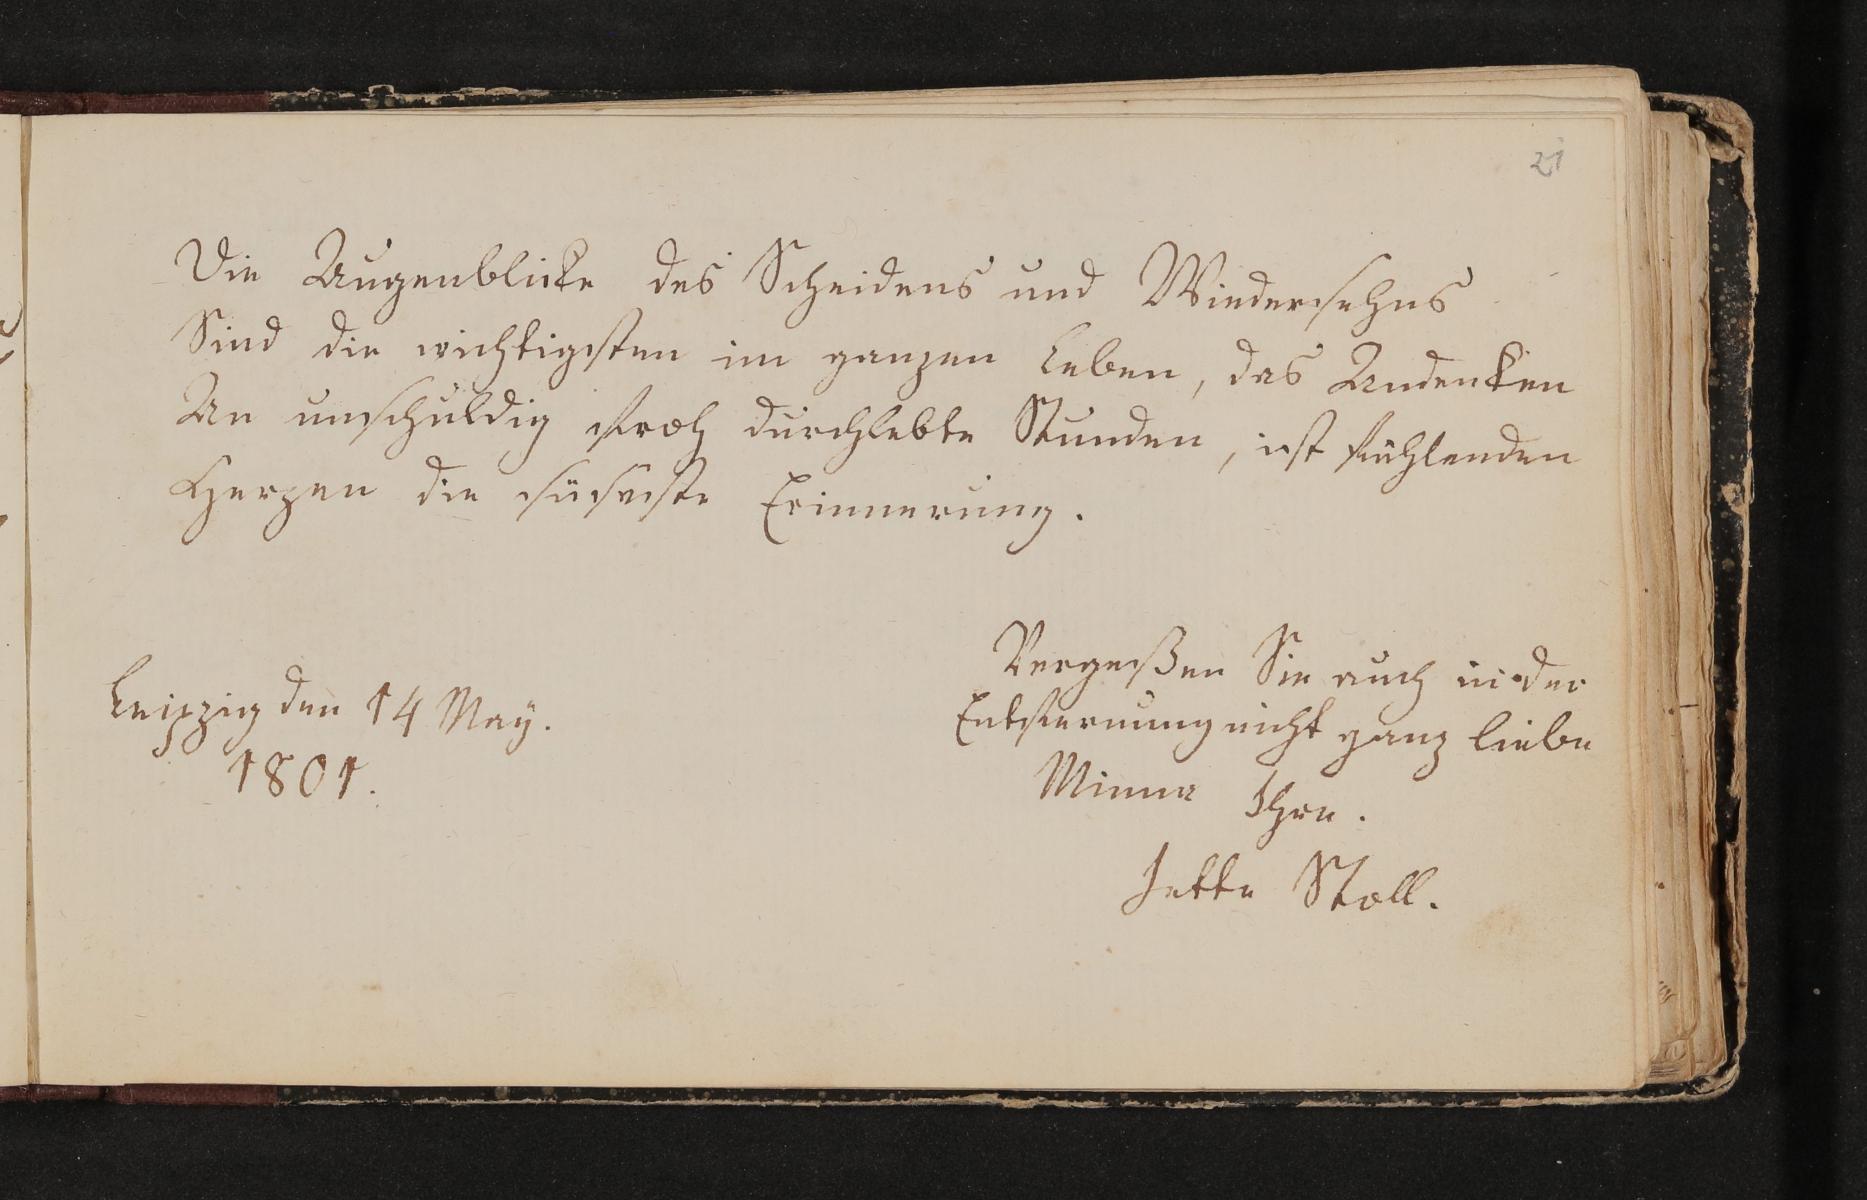 21
Die Augenblicke des Scheidens und Wiedersehns
Sind die wichtigsten im ganzen Leben, das Andenken
An unschuldig froh durchlebte Stunden, ist fühlenden
Herzen die süseste Erinnerung.
Vergeßen Sie auch in der
Entfernung nicht ganz liebe
Minna Ihre.
Jette Stoll.
Leipzig den 14 May.
1801.